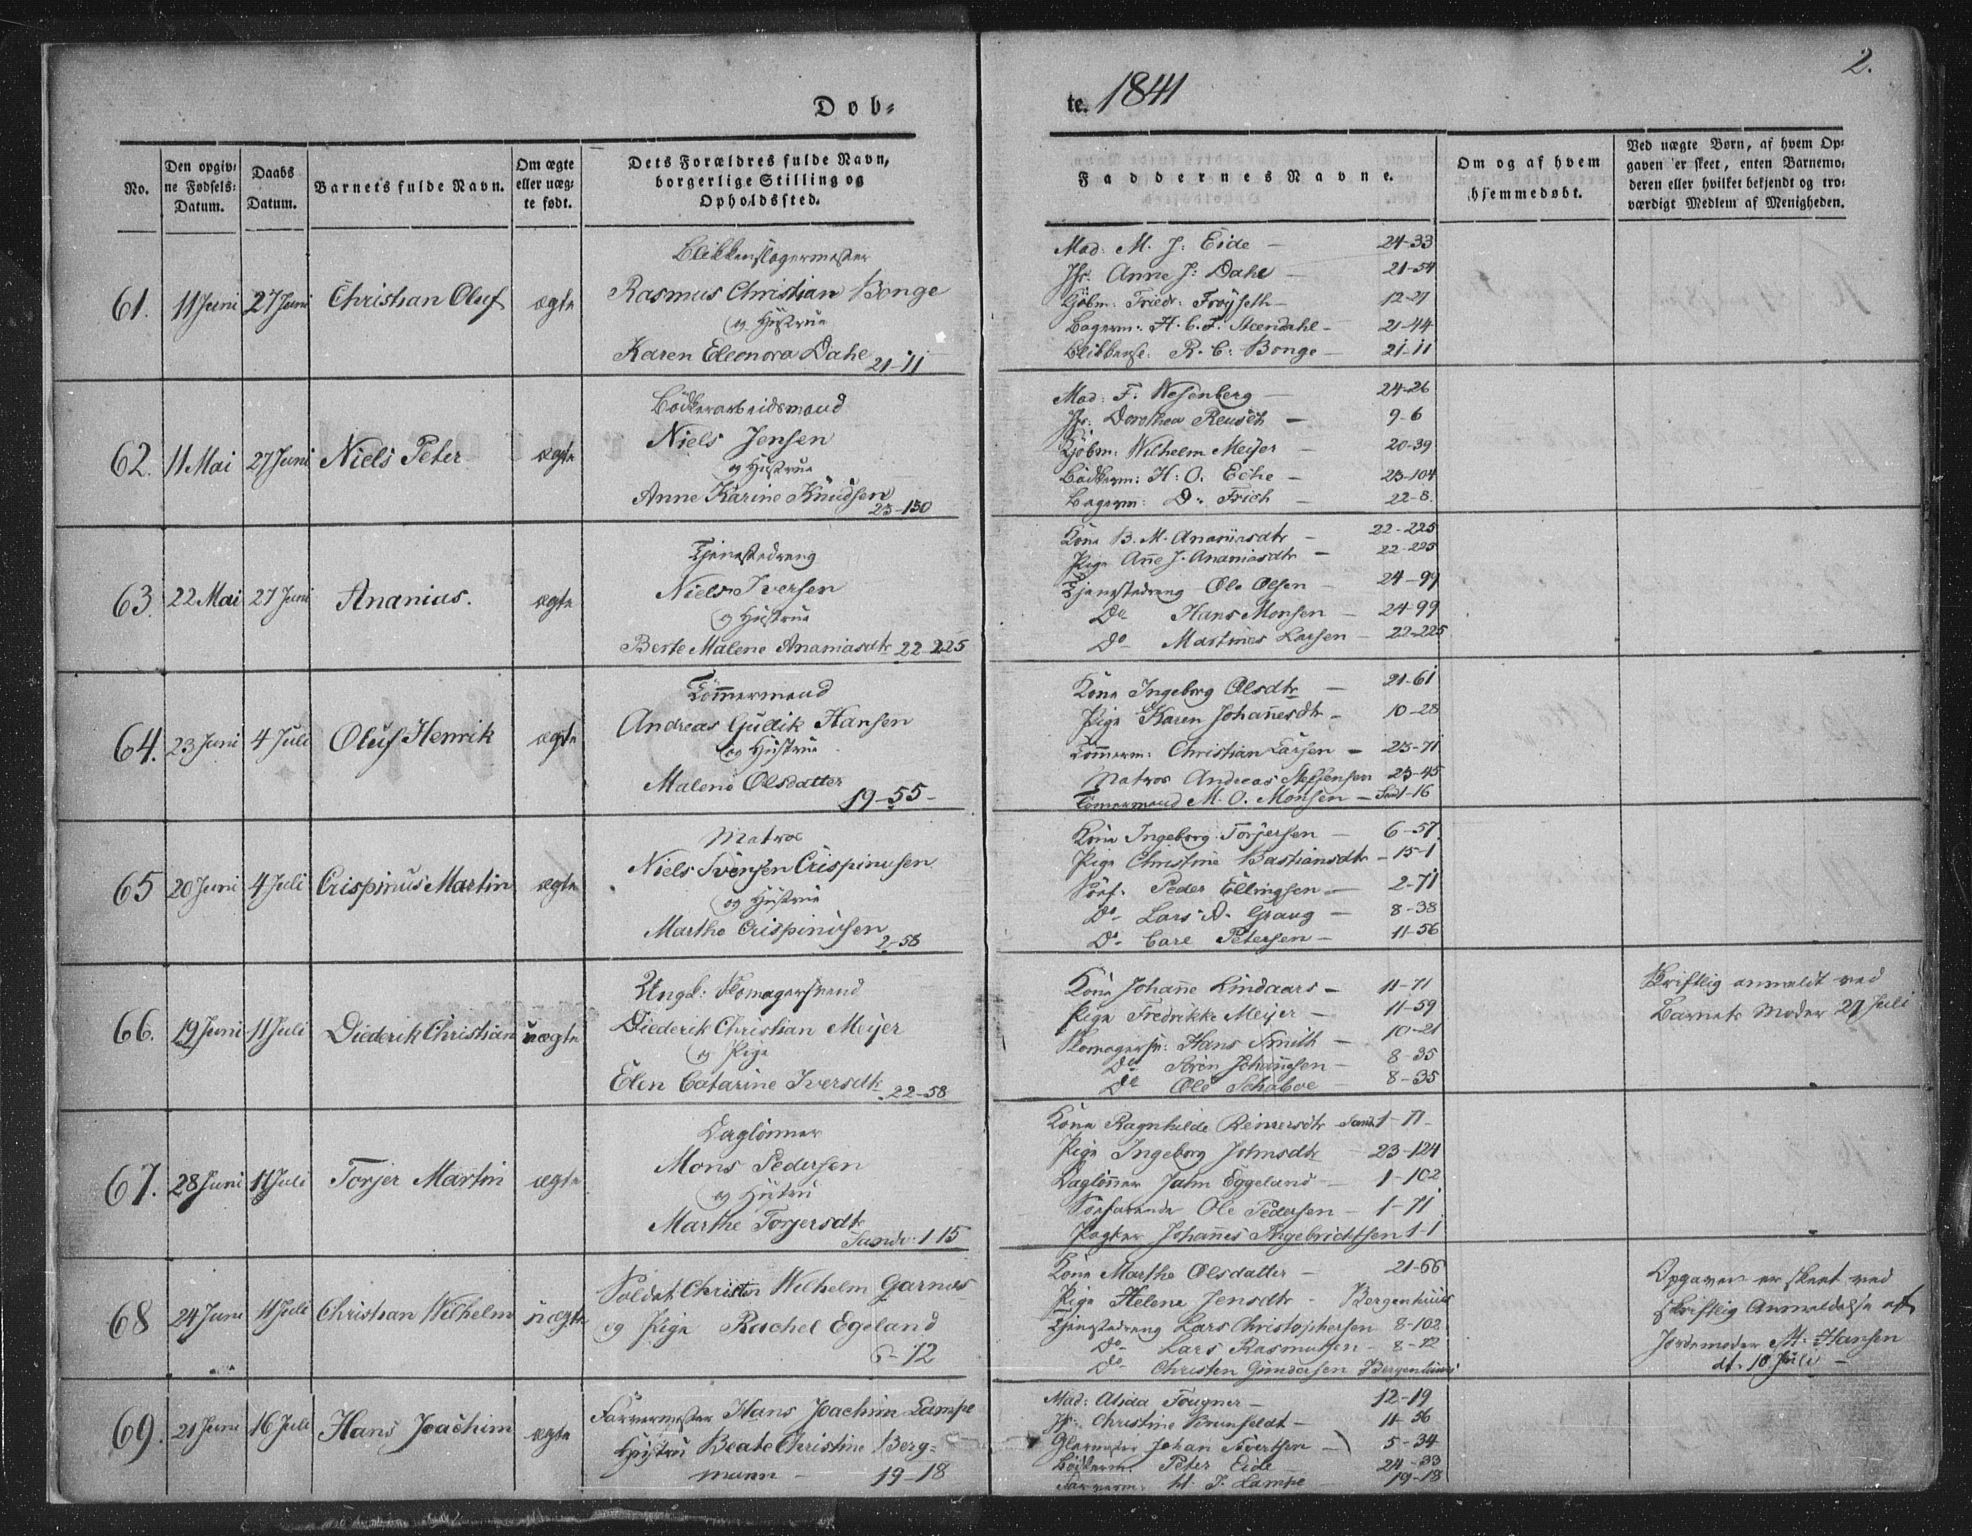 2.
Dob-
te. 1841
No.
Den opgiv-
ne Fødsels-
Datum.
Daabs
Datum.
Barnets fulde Navn.
Om ægte
eller uæg-
te født.
Dets Forældres fulde Navn,
borgerlige Stilling og
Opholdssted.
Faddernes Navne.
Om og af hvem
hjemmedøbt.
Ved uægte Børn, af hvem Op-
gaven er skeet, enten Barnemo-
deren eller hvilket bekjendt og tro-
værdigt Medlem af Menigheden.
61. 11 Juni 27 Juni Christian Oluf ægte
Blikkenslagermester
Rasmus Christian Bonge
og Hustrue
Karen Eleonora Dahl
21-11
Mad: M. J: Eide - 24-33
Jfr: Anne J: Dahl - 21-54
Kjøbm: Friedr: Frøyseth - 12-27
Bagerm: H. C. F. Steendahl - 21-44
Blikkensl: R. C: Bonge - 21-11
62. 11 Mai 27 Juni Niels Peter ægte
Bødkerarbeidsmand
Niels Jensen
og Hustrue
Anne Karine Knudsen
23-130
Mad: F. Wesenberg - 24-26
Jfr: Dorothea Reusch - 9-6
Kjøbm: Wilhelm Meijer - 20-39
Bødkerm: H: O. Eche - 23-104
Bagerm: D. Frich - 22-8.
63. 22 Mai 27 Juni Ananius. ægte
Tjenestedreng
Niels Iversen
og Hustrue
Berte Malene Ananiasdtr 22-225
Kone B. M. Ananiasdtr - 22-225
Pige Anne J. Ananiasdtr - 22-225
Tjenestedreng Ole Olsen - 24-99
Do Hans Monsen - 24-99
Do Martines Larsen - 22-225
64. 23 Juni 4 Juli Oluf Henrik ægte
Tømmermand
Andreas Gudik Hansen
og Hustrue
Malene Olsdatter
19-55-
Kone Ingeborg Olsdtr - 21-61
Pige Karen Johannesdtr - 10-28
Tømmerm: Christian Larsen - 23-71
Matros Andreas Steffensen 23-45
Tømmermand M. O. Monsen - Sand 1-16
65 20 Juni 4 Juli Crispinus Martin ægte
Matros
Niels Svensen Crispinusen
og Hustrue
Marthe Crispinusen
2-58
Kone Ingeborg Torjersen - 6-57
Pige Christine Bastiansdtr - 15-1
Søef. Peder Ellingsen - 2-71
Do Lars A. Graug - 8-38
Do Carl Petersen - 11-56
66. 19 Juni 11 Juli Diederik Christian uægte
Ungk: Skomagersvend
Diederik Christian Meijer
og Pige
Elen Catarine Iversdtr 22-58
Kone Johanne Lindaars - 11-71
Pige Fredrikke Meijer - 11-59
Skomagersv: Hans Smith - 10-21
Do Søren Johannesen - 8-35
Do Ole Schaboe - 8-35
Skriftlig anmeldt ved
Barnets Moder 27 Juli
67. 28 Juni 11 Juli Torjer Martin ægte
Daglønner
Mons Pedersen
og Hustru
Marthe Torjersdtr
Sandv: 1 15
Kone Ragnhilde Reinersdtr Sandv 1-11-
Pige Ingeborg Johnsdtr - 23-124
Daglønner Jahn Eggeland - 1-102
Søefarende Ole Pedersen - 1-71
Johannes Ingebrichtsen 1-1
68 24 Juni 11 Juli Christian Wilhelm uægte
Soldat Christen Wilhelm Garnæs
og Pige Rachel Egeland
6-72
Kone Marthe Olsdatter - 21-66
Pige Helene Jensdtr - Bergenhuus
Tjenestedreng Lars Christophersen 8-102
Do Lars Rasmussen - 8-72
Do Christen Gundersen Bergenhuus
Opgaven er skeet ved
skriftlig Anmeldelse af
Jordemoder M: Hansen
dt. 10 Juli -
69. 21 Juni 16 Juli Hans Joachim ægte
Farvermester Hans Joachim Lampe
Hustru Beate Christine Berg-
mann - 19-18
Mad: Alida Fougner - 12-19
Jfr: Christine Brunfeldt - 11-56
Glarmester Johan Sivertsen - 5-34
Bødkerm. Peter Eide 24-33
Farverm: H. J. Lampe 19-18